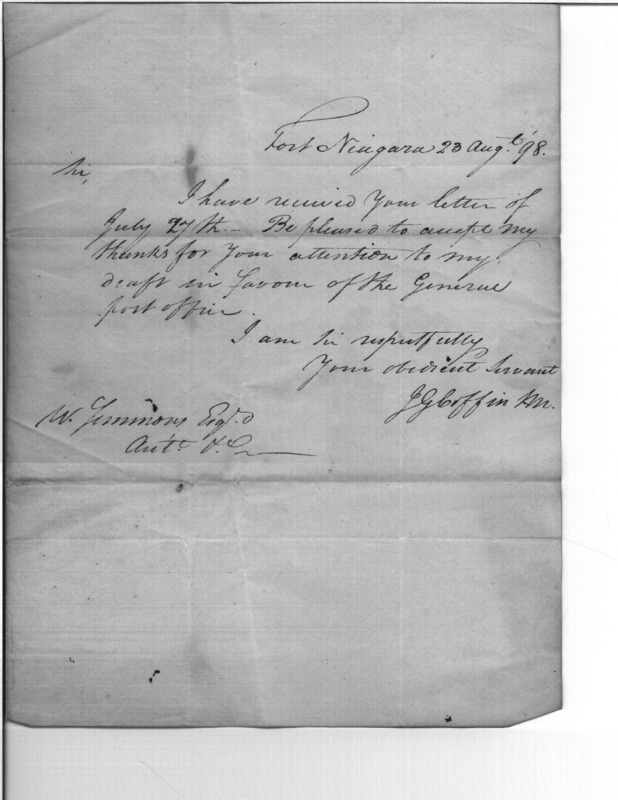 Fort Niagara 23 Augt. '98.
Sir,
I have received Your letter of
July 27th - Be pleased to accept my
thanks for Your attention to my
draft in favour of the General
post office.
I am Sir respectfully
Your obedient Servant
J G Coffin
W. Simmons Esqr.